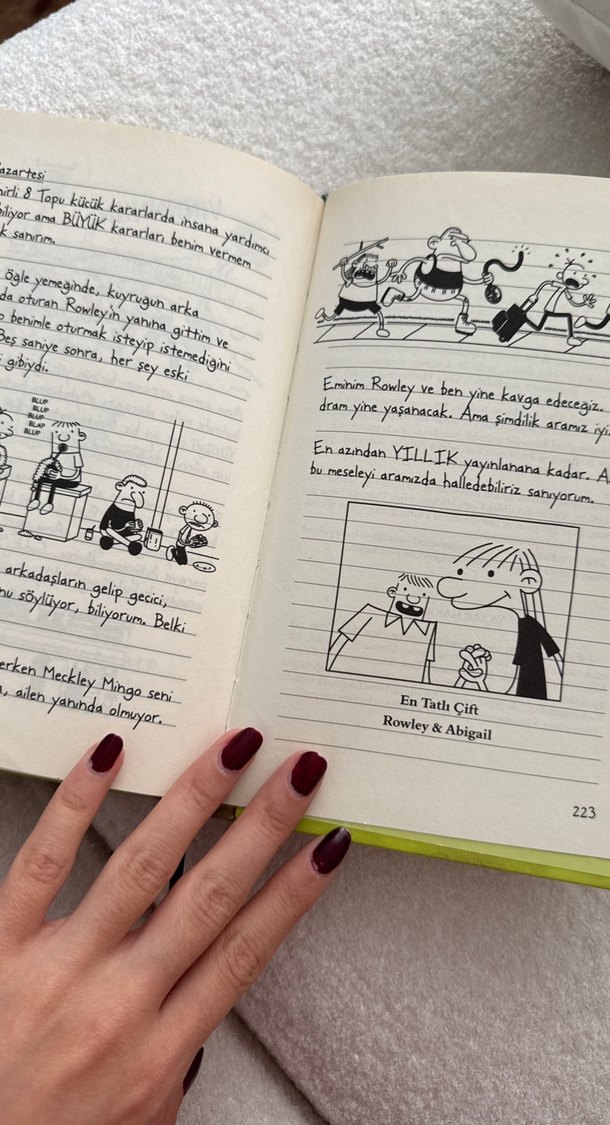 azartesi
hirli 8 Topu küçük kararlarda insana yardımcı
biliyor ama BÜYÜK kararları benim vermem
k sanırım.
öğle yemeğinde, kuyruğun arka
da oturan Rowley'in yanına gittim ve
o benimle oturmak isteyip istemediğini
Beş saniye sonra, her şey eski
i gibiydi.
BLUP
BLUP
BLUP
BLAP
BLUP
arkadaşların gelip geçici,
nu söylüyor, biliyorum. Belki
erken Meckley Mingo seni
a, ailen yanında olmuyor.
Eminim Rowley ve ben yine kavga edeceğiz.
dram yine yaşanacak. Ama şimdilik aramız iyi.
En azından YILLIK yayınlanana kadar. A
bu meseleyi aramızda halledebiliriz sanıyorum.
En Tatlı Çift
Rowley & Abigail
223